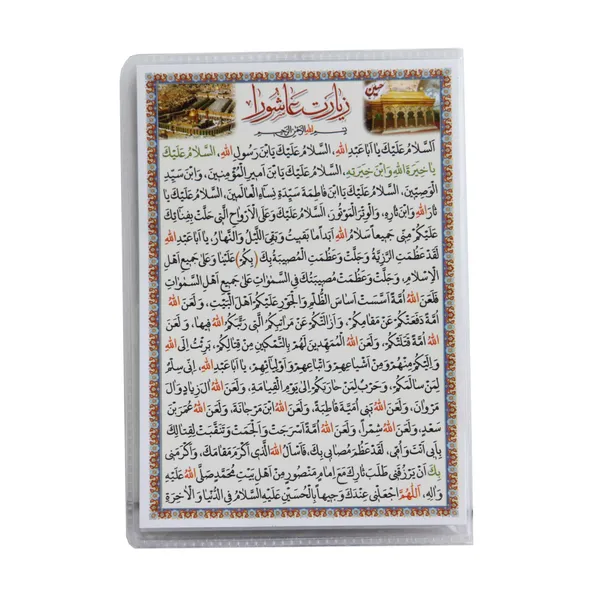 زیارت عاشورا
حسین
بِسْمِ اللهِ الرَّحْمنِ الرَّحیمِ
اَلسَّلامُ عَلَیْكَ یا اَبا عَبْدِ اللهِ، اَلسَّلامُ عَلَیْكَ یَا بْنَ رَسُولِ اللهِ، اَلسَّلامُ عَلَیْكَ
یا خِیَرَةَ اللهِ وَابْنَ خِیَرَتِهِ، اَلسَّلامُ عَلَیْكَ یَا بْنَ اَمیرِ الْمُؤْمِنینَ، وَابْنَ سَیِّدِ
الْوَصِیّینَ، اَلسَّلامُ عَلَیْكَ یَا بْنَ فاطِمَةَ سَیِّدَةِ نِساءِ الْعالَمینَ، اَلسَّلامُ عَلَیْكَ یا
ثارَ اللهِ وَابْنَ ثارِهِ، وَالْوِتْرَ الْمَوْتُورَ، اَلسَّلامُ عَلَیْكَ وَعَلَى الْاَرْواحِ الَّتی حَلَّتْ بِفِنائِكَ
عَلَیْكُمْ مِنّی جَمیعاً سَلامُ اللهِ اَبَداً ما بَقیتُ وَبَقِیَ اللَّیْلُ وَالنَّهارُ، یا اَبا عَبْدِ اللهِ
لَقَدْ عَظُمَتِ الرَّزِیَّةُ وَجَلَّتْ وَعَظُمَتِ الْمُصیبَةُ بِكَ (بِكُمْ) عَلَیْنا وَعَلى جَمیعِ اَهْلِ
الْاِسْلامِ، وَجَلَّتْ وَعَظُمَتْ مُصیبَتُكَ فِی السَّمواتِ عَلى جَمیعِ اَهْلِ السَّمواتِ
فَلَعَنَ اللهُ اُمَّةً اَسَّسَتْ اَساسَ الظُّلْمِ وَالْجَوْرِ عَلَیْكُمْ اَهْلَ الْبَیْتِ، وَلَعَنَ اللهُ
اُمَّةً دَفَعَتْكُمْ عَنْ مَقامِكُمْ، وَاَزالَتْكُمْ عَنْ مَراتِبِكُمُ الَّتی رَتَّبَكُمُ اللهُ فیها، وَلَعَنَ
اللهُ اُمَّةً قَتَلَتْكُمْ، وَلَعَنَ اللهُ الْمُمَهِّدینَ لَهُمْ بِالتَّمْكینِ مِنْ قِتالِكُمْ، بَرِئْتُ اِلَى اللهِ
وَاِلَیْكُمْ مِنْهُمْ وَمِنْ اَشْیاعِهِمْ وَاَتْباعِهِمْ وَاَوْلِیائِهِمْ، یا اَبا عَبْدِ اللهِ، اِنّی سِلْمٌ
لِمَنْ سالَمَكُمْ، وَحَرْبٌ لِمَنْ حارَبَكُمْ اِلى یَوْمِ الْقِیامَةِ، وَلَعَنَ اللهُ آلَ زِیادٍ وَآلَ
مَرْوانَ، وَلَعَنَ اللهُ بَنی اُمَیَّةَ قاطِبَةً، وَلَعَنَ اللهُ ابْنَ مَرْجانَةَ، وَلَعَنَ اللهُ عُمَرَ بْنَ
سَعْدٍ، وَلَعَنَ اللهُ شِمْراً، وَلَعَنَ اللهُ اُمَّةً اَسْرَجَتْ وَاَلْجَمَتْ وَتَنَقَّبَتْ لِقِتالِكَ
بِاَبی اَنْتَ وَاُمّی، لَقَدْ عَظُمَ مُصابی بِكَ، فَاَسْاَلُ اللهَ الَّذی اَكْرَمَ مَقامَكَ، وَاَكْرَمَنی
بِكَ اَنْ یَرْزُقَنی طَلَبَ ثارِكَ مَعَ اِمامٍ مَنْصُورٍ مِنْ اَهْلِ بَیْتِ مُحَمَّدٍ صَلَّى اللهُ عَلَیْهِ
وَآلِهِ، اَللّهُمَّ اجْعَلْنی عِنْدَكَ وَجیهاً بِالْحُسَیْنِ عَلَیْهِ السَّلامُ فِی الدُّنْیا وَالْاخِرَةِ